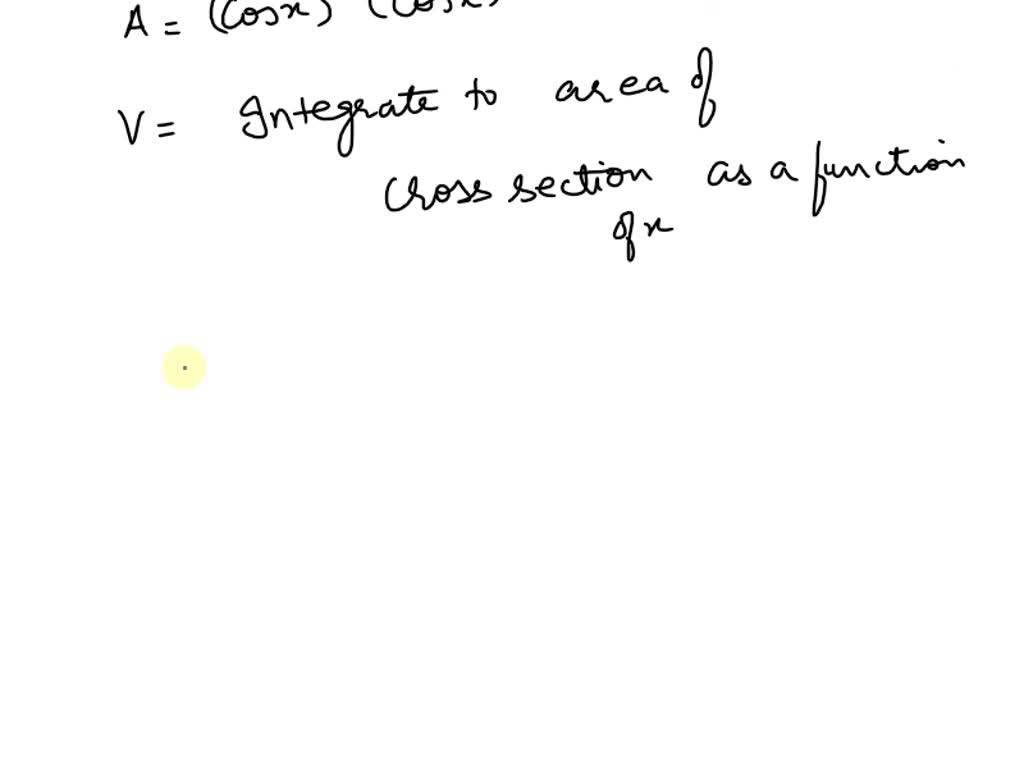 A = (Cosx) (Cosx)
V = Integrate to area of
cross section as a function
of x